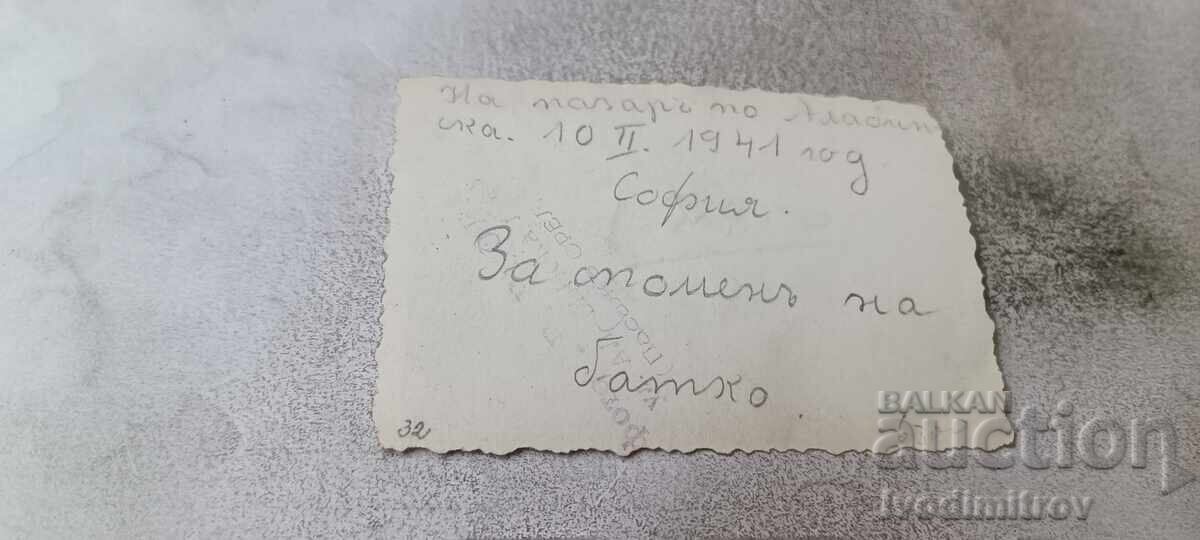 На пазаръ по
ска. 10 II. 1941 год.
София.
За споменъ на
батко
32
BALKAN
auction
ivodimitrov